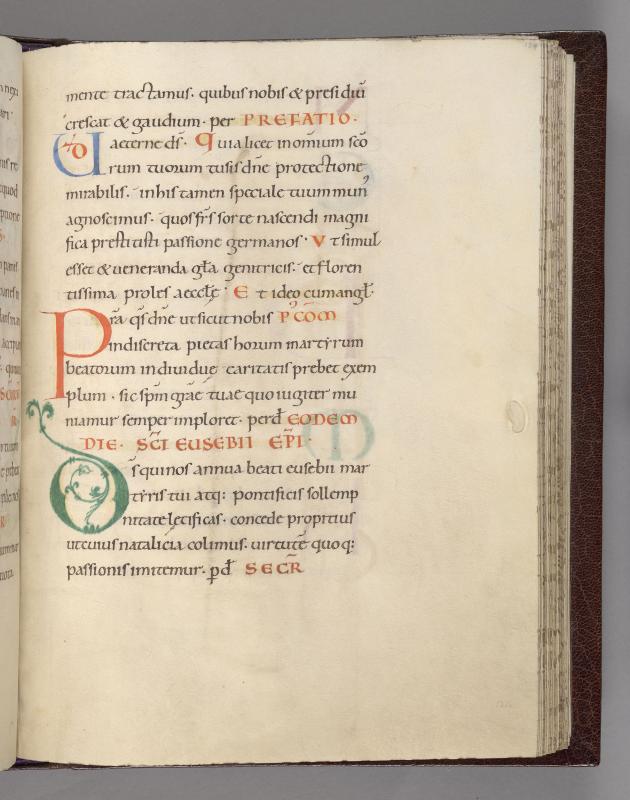 mente tractamus. quibus nobis & presidiū
crescat & gaudium. per PREFATIO.
VD aeterne dš. Quia licet in omium scō
rum tuorum tu sis dñe protectione
mirabilis. in his tamen speciale tuum mun᾽
agnoscimus. quos frs̄ sorte nascendi magni
fica prestitisti passione germanos. Ut simul
esset & ueneranda gl̄a genitricis. et floren
tissima proles aecclę. Et ideo cum angl̄.
Pr̄a qs̄ dñe ut sicut nobis P᾽ CŌM
indiscreta pietas horum martyrum
beatorum indiuiduę caritatis prebet exem
plum. sic spm̄ grāe tuae quo iugiter mu
niamur semper imploret. per đ EODEM
DIE. SC̄I EUSEBII EP̄I.
Ds̄ qui nos annua beati eusebii mar
tyris tui atq: pontificis sollemp
nitate lętificas. concede propitius
ut cuius natalicia colimus. uirtutē quoq:
passionis imitemur. ꝑ đ SECR̄